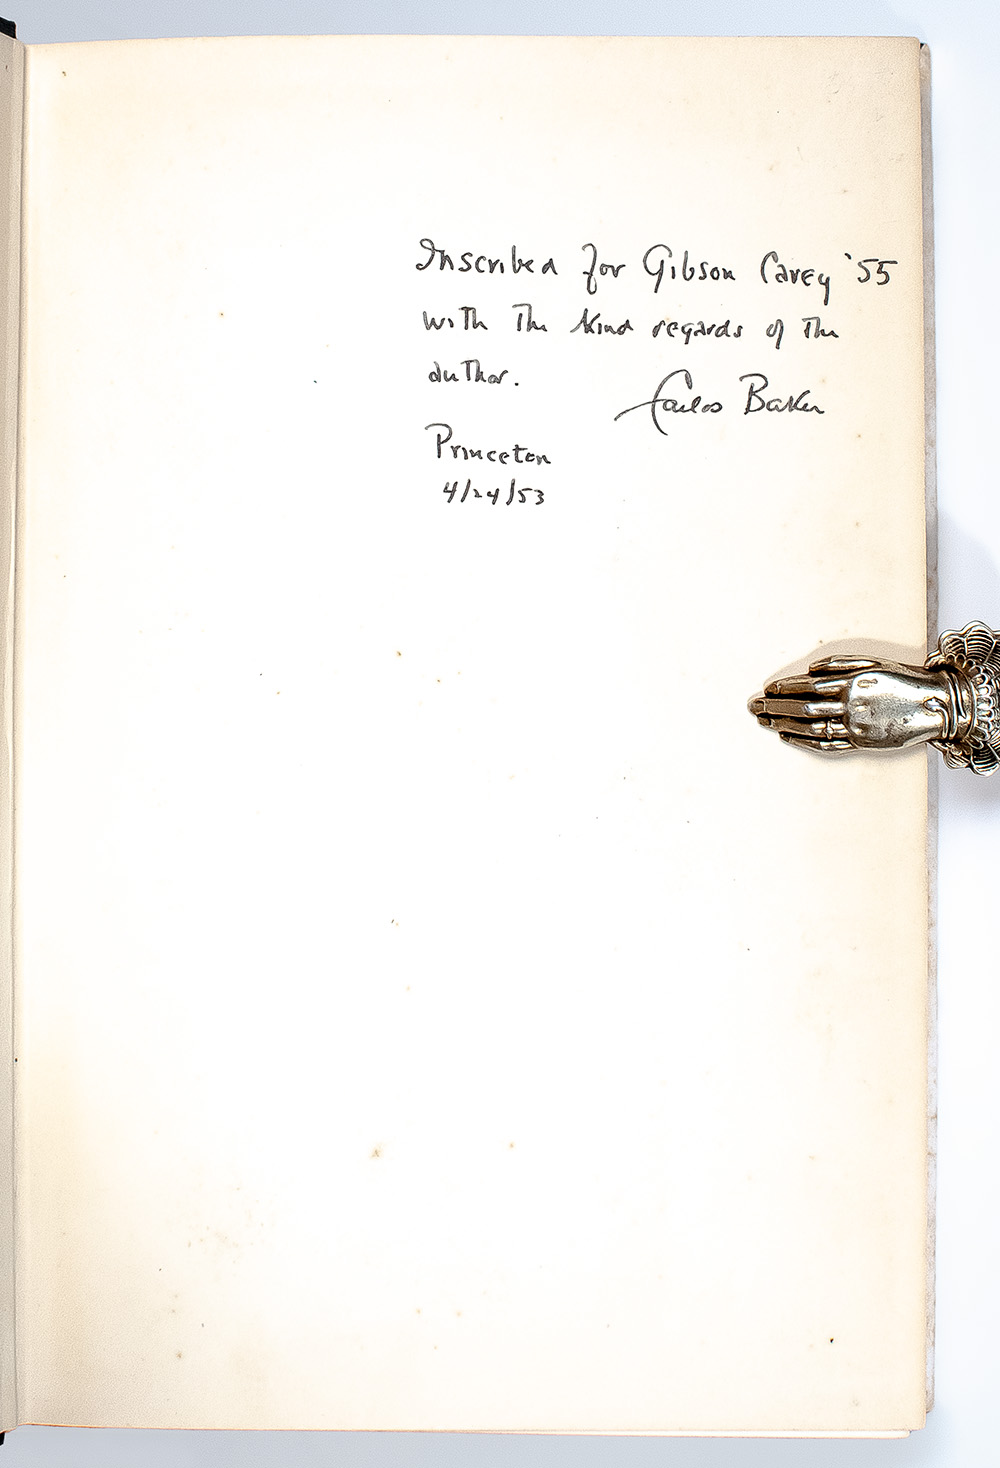 Inscribed for Gibson Carey '55
with the kind regards of the
author.
Carlos Baker
Princeton
4/24/53